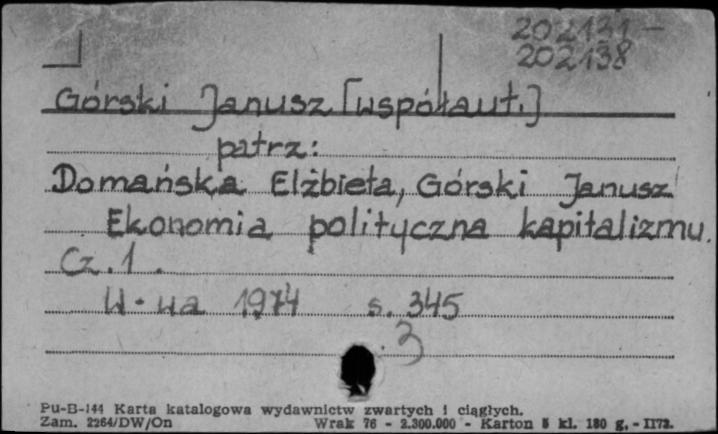 202131 -
202138
Górski Janusz [współaut.]
patrz:
Domańska Elżbieta, Górski Janusz
Ekonomia polityczna kapitalizmu.
Cz. 1.
W-wa 1974 s. 345
3
Pu-B-144 Karta katalogowa wydawnictw zwartych i ciągłych.
Zam. 2264/DW/On Wrak 76 - 2.300.000 - Karton 5 kl. 180 g. - II72.